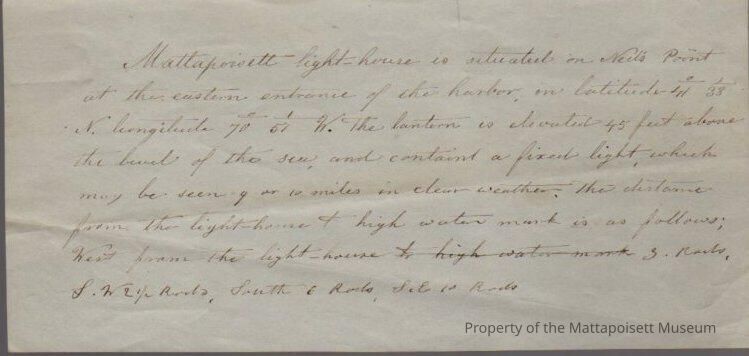 Mattapoisett light-house is situated on Neds Point
at the eastern entrance of the harbor, in latitude 41° 33'
N. longitude 70° 51' W. The lantern is elevated 45 feet above
the level of the sea, and containt a fixed light, which
may be seen 9 or 10 miles in clear weather. The distance
from the light-house & high water mark is as follows;
West from the light-house to high water mark 3. Rods,
S. W 2 1/2 Rods, South 6 Rods, S.E 10 Rods
Property of the Mattapoisett Museum